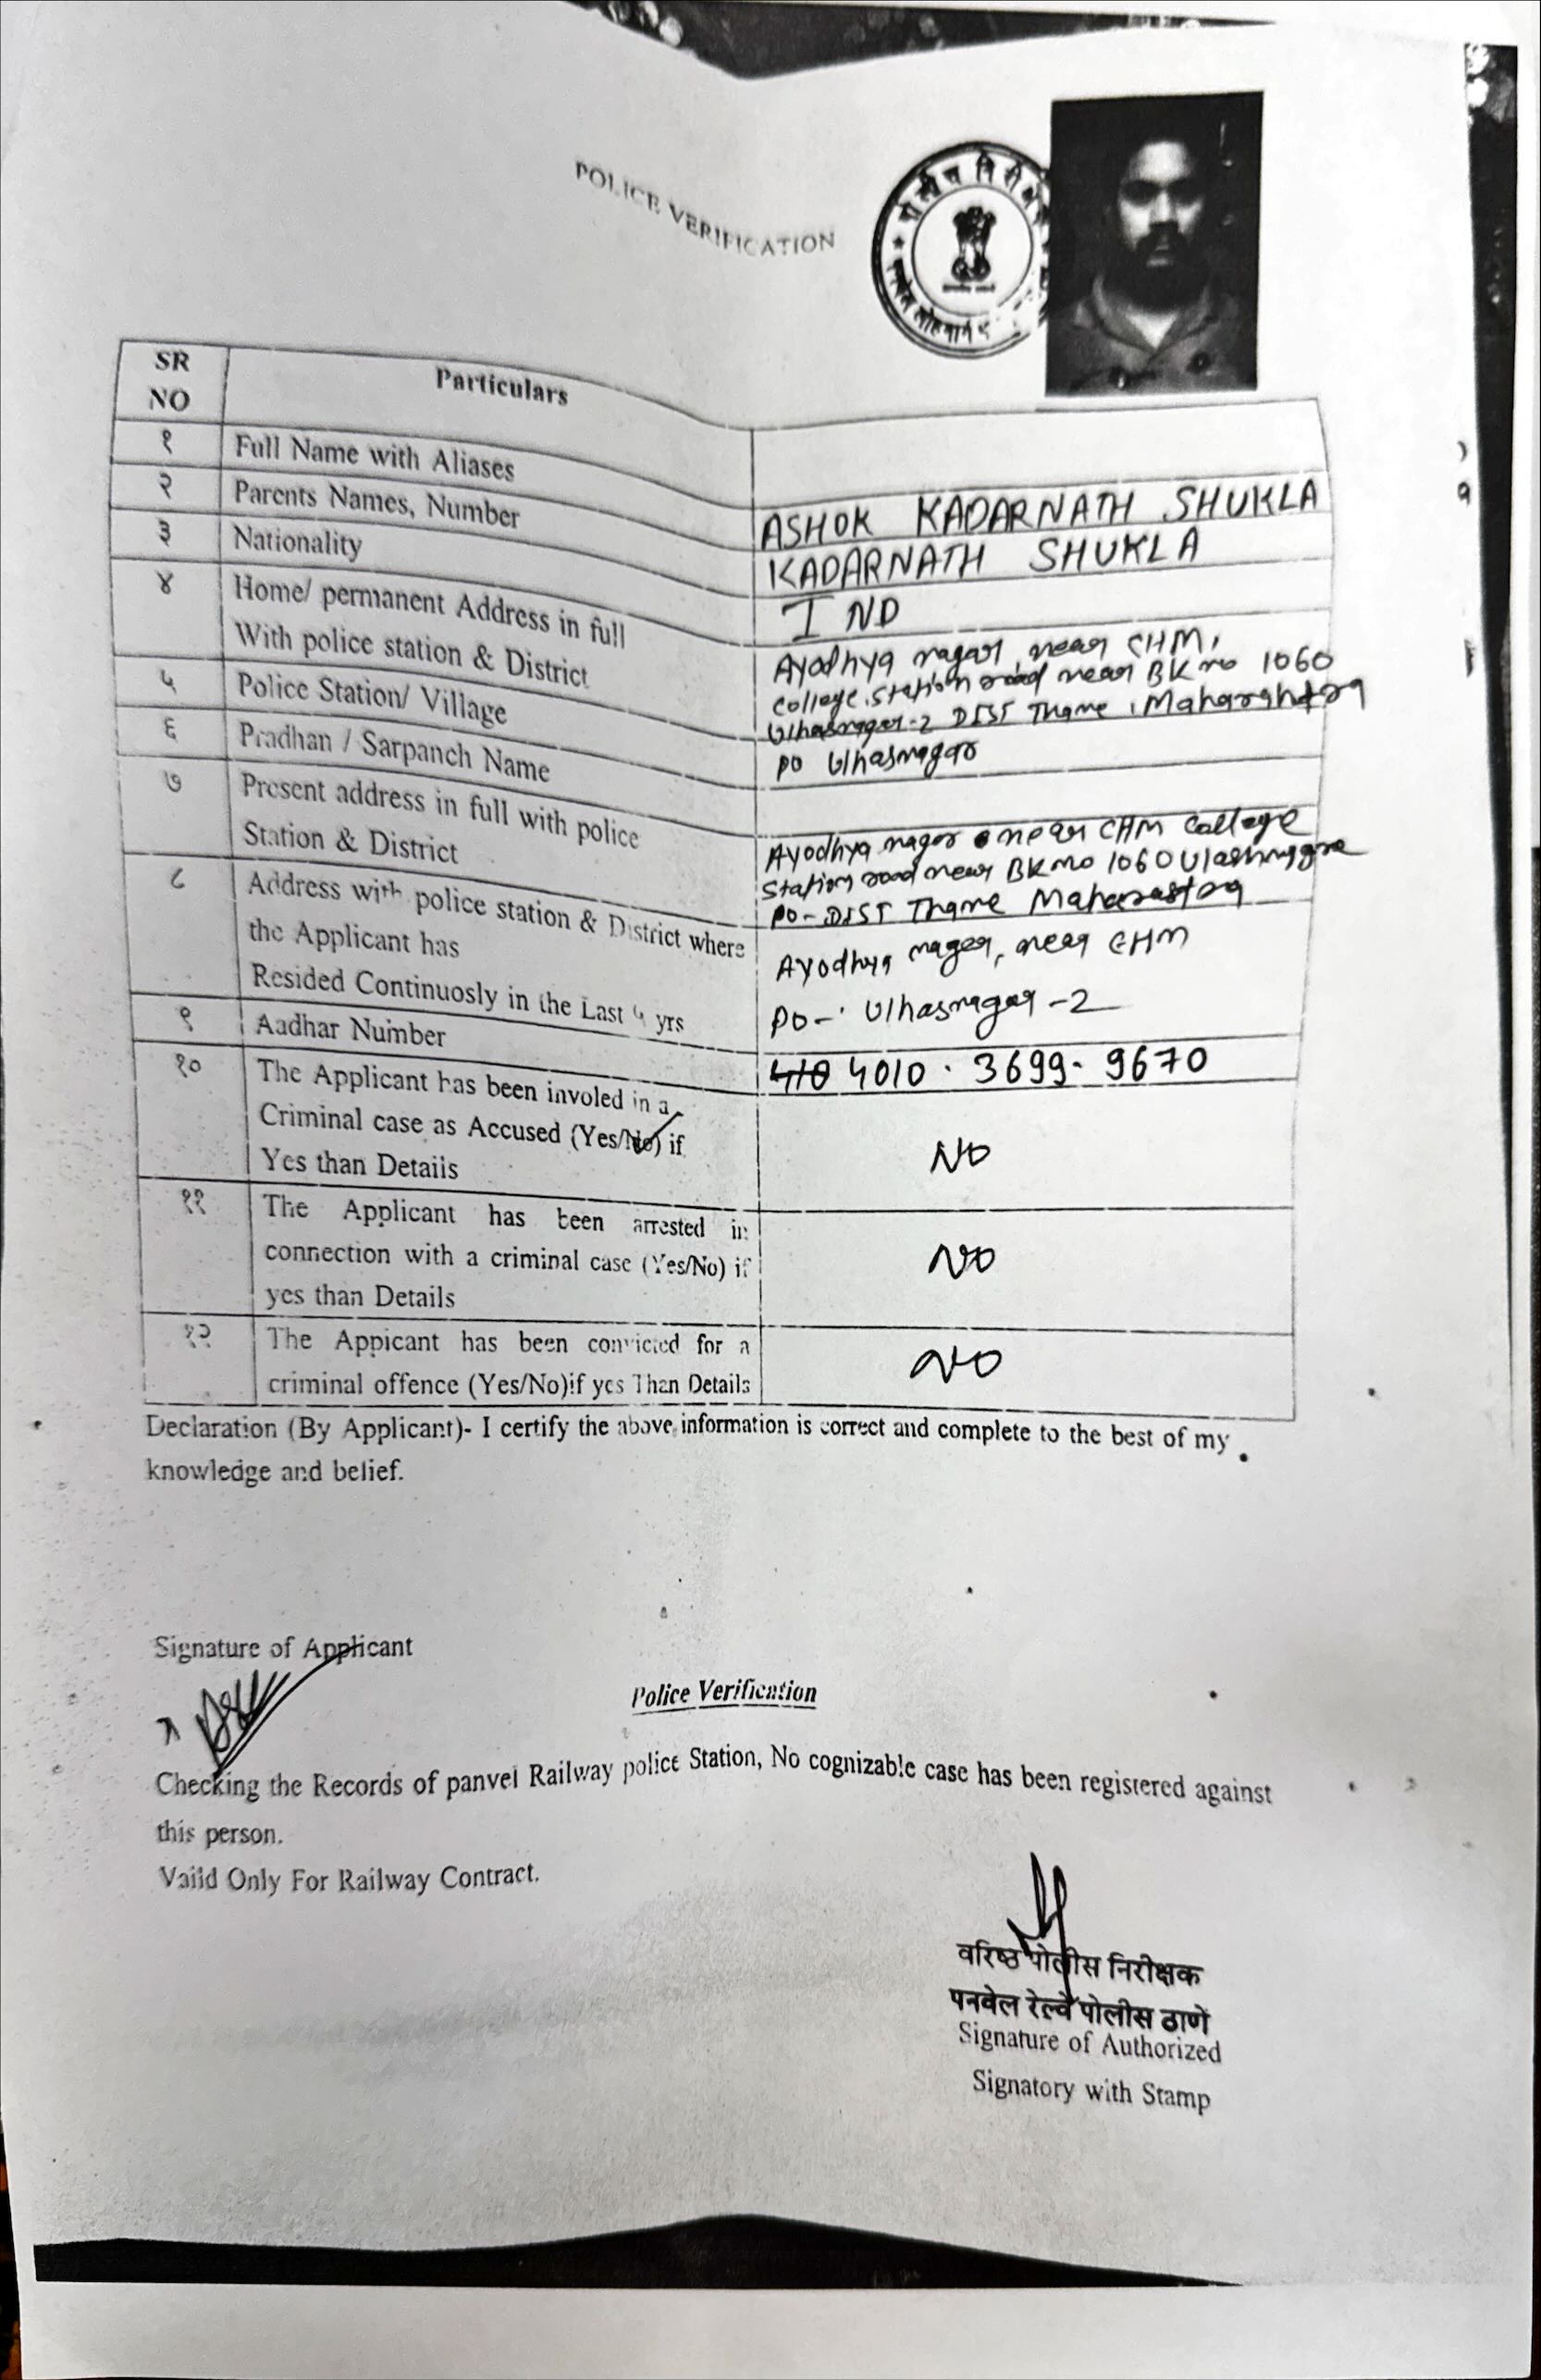 POLICE VERIFICATION
पोलीस निरीक्ष
लोहमार्ग
SR NO
Particulars
१
Full Name with Aliases
ASHOK KADARNATH SHUKLA
२
Parents Names, Number
KADARNATH SHUKLA
३
Nationality
IND
४
Home/ permanent Address in full
With police station & District
Ayodhya nagar near CHM,
college station road near BK no 1060
Ulhasnagar-2 DIST Thane, Maharashtra
५
Police Station/ Village
PO Ulhasnagar
६
Pradhan / Sarpanch Name
७
Present address in full with police
Station & District
Ayodhya nagar near CHM college
Station road near BK no 1060
PO- DIST Thane Maharastra
८
Address with police station & District where
the Applicant has
Resided Continuosly in the Last ५ yrs
Ayodhya nagar, near CHM
PO- Ulhasnagar -2
९
Aadhar Number
410 4010 . 3699 - 9670
१०
The Applicant has been involed in a
Criminal case as Accused (Yes/No) if
Yes than Details
NO
११
The Applicant has been arrested in
connection with a criminal case (Yes/No) if
yes than Details
NO
१२
The Appicant has been convicted for a
criminal offence (Yes/No)if yes Than Details
NO
Declaration (By Applicant)- I certify the above information is correct and complete to the best of my
knowledge and belief.
Signature of Applicant
Police Verification
Checking the Records of panvel Railway police Station, No cognizable case has been registered against
this person.
Vaild Only For Railway Contract.
वरिष्ठ पोलीस निरीक्षक
पनवेल रेल्वे पोलीस ठाणे
Signature of Authorized
Signatory with Stamp